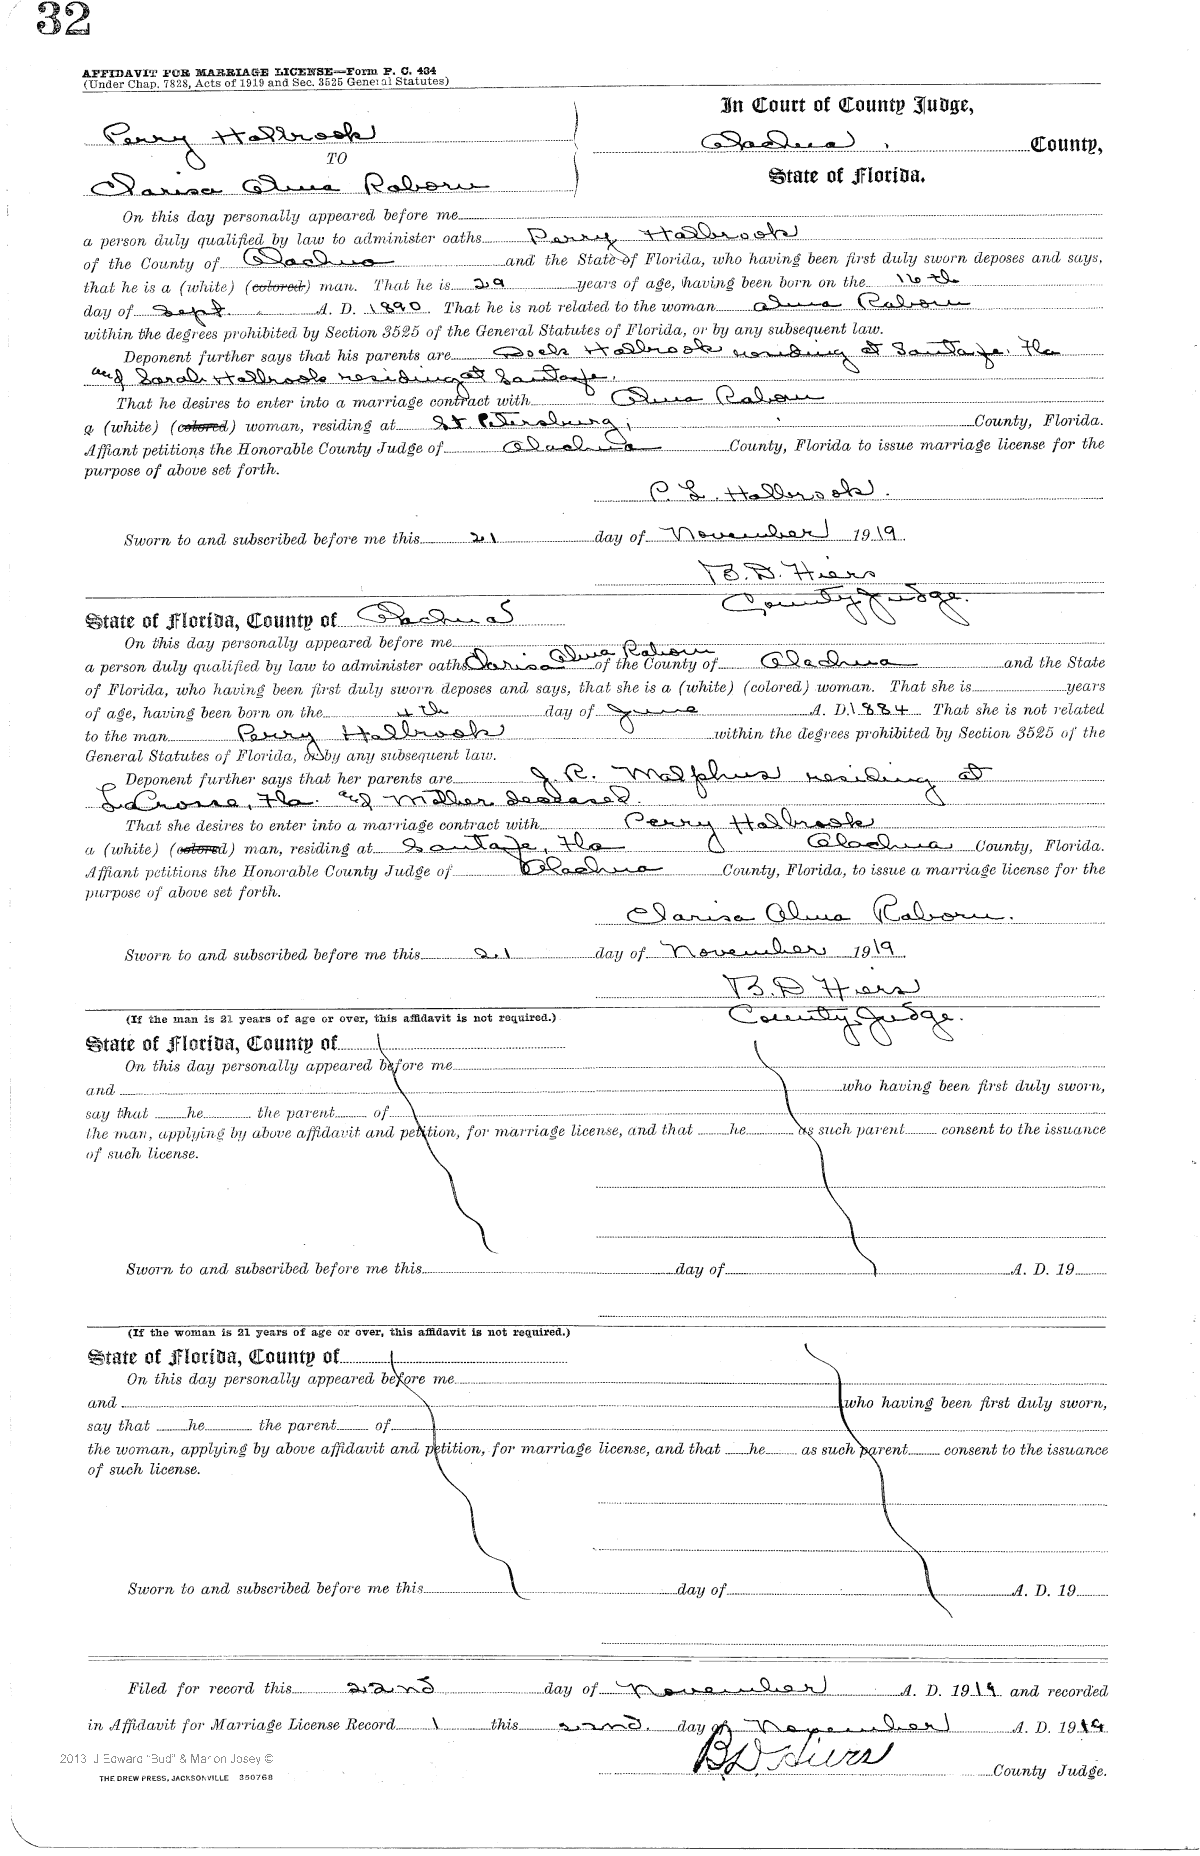 32
AFFIDAVIT FOR MARRIAGE LICENSE—Form P. C. 434
(Under Chap. 7828, Acts of 1919 and Sec. 3525 General Statutes)
Perry Holbrook
TO
Clarisa Alma Raborn
In Court of County Judge,
Alachua County,
State of Florida.
On this day personally appeared before me
a person duly qualified by law to administer oaths Perry Holbrook
of the County of Alachua and the State of Florida, who having been first duly sworn deposes and says,
that he is a (white) (colored) man. That he is 29 years of age, having been born on the 16th
day of Sept. A. D. 1890 That he is not related to the woman Alma Raborn
within the degrees prohibited by Section 3525 of the General Statutes of Florida, or by any subsequent law.
Deponent further says that his parents are Dock Holbrook residing at Santafe, Fla
and Sarah Holbrook residing at Santafe.
That he desires to enter into a marriage contract with Alma Raborn
a (white) (colored) woman, residing at St Petersburg, County, Florida.
Affiant petitions the Honorable County Judge of Alachua County, Florida to issue marriage license for the
purpose of above set forth.
P. L. Holbrook.
Sworn to and subscribed before me this 21 day of November 1919.
B. D. Hiers
County Judge.
State of Florida, County of Alachua
On this day personally appeared before me
a person duly qualified by law to administer oaths Clarisa Alma Raborn of the County of Alachua and the State
of Florida, who having been first duly sworn deposes and says, that she is a (white) (colored) woman. That she is years
of age, having been born on the 4th day of June A. D. 1884 That she is not related
to the man Perry Holbrook within the degrees prohibited by Section 3525 of the
General Statutes of Florida, or by any subsequent law.
Deponent further says that her parents are J. R. Malphus residing at
LaCrosse, Fla. and Mother deceased.
That she desires to enter into a marriage contract with Perry Holbrook
a (white) (colored) man, residing at Santafe, Fla Alachua County, Florida.
Affiant petitions the Honorable County Judge of Alachua County, Florida, to issue a marriage license for the
purpose of above set forth.
Clarisa Alma Raborn.
Sworn to and subscribed before me this 21 day of November 1919.
B. D Hiers
County Judge.
(If the man is 21 years of age or over, this affidavit is not required.)
State of Florida, County of
On this day personally appeared before me
and who having been first duly sworn,
say that he the parent of
the man, applying by above affidavit and petition, for marriage license, and that he as such parent consent to the issuance
of such license.
Sworn to and subscribed before me this day of A. D. 19
(If the woman is 21 years of age or over, this affidavit is not required.)
State of Florida, County of
On this day personally appeared before me
and who having been first duly sworn,
say that he the parent of
the woman, applying by above affidavit and petition, for marriage license, and that he as such parent consent to the issuance
of such license.
Sworn to and subscribed before me this day of A. D. 19
Filed for record this 22nd day of November A. D. 1919 and recorded
in Affidavit for Marriage License Record 1 this 22nd. day of November A. D. 1919
B. D. Hiers County Judge.
2013 J Edward "Bud" & Marion Josey ©
THE DREW PRESS, JACKSONVILLE 350768